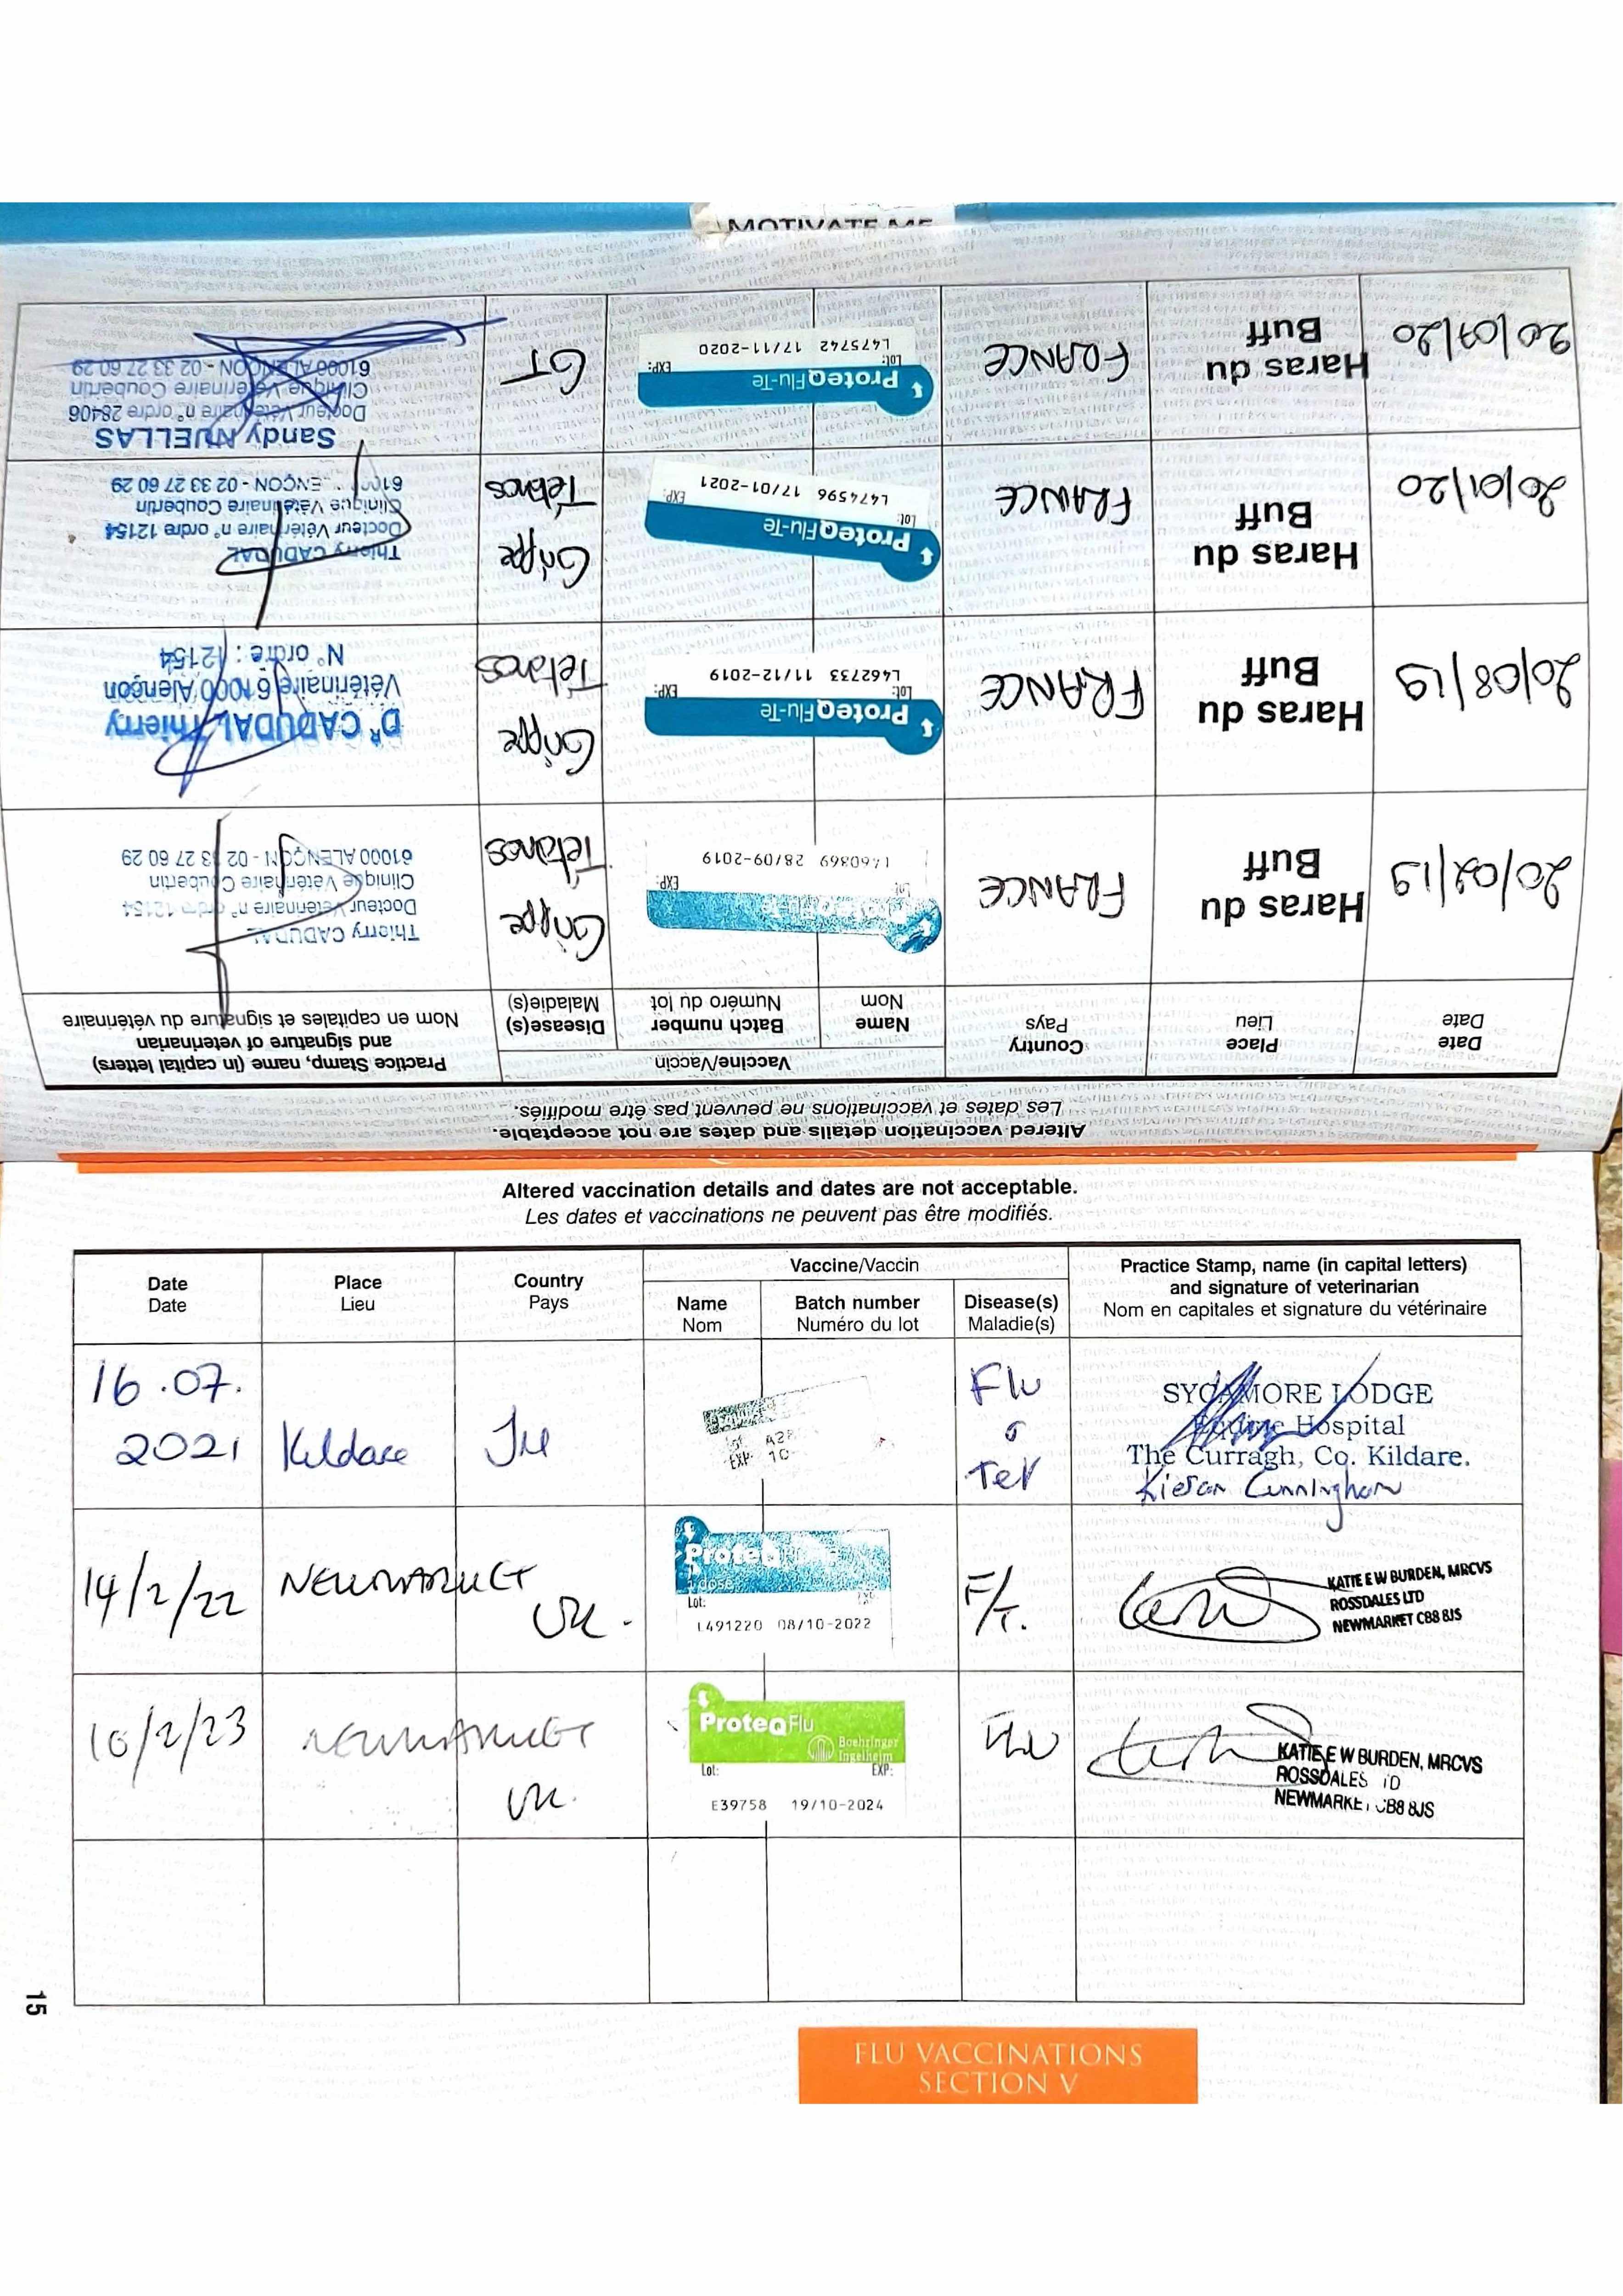 MOTIVATE ME
Altered vaccination details and dates are not acceptable.
Les dates et vaccinations ne peuvent pas être modifiés.
Date
Date
Place
Lieu
Country
Pays
Vaccine/Vaccin
Name
Nom
Batch number
Numéro du lot
Disease(s)
Maladie(s)
Practice Stamp, name (in capital letters)
and signature of veterinarian
Nom en capitales et signature du vétérinaire
20/02/19
Haras du
Buff
FRANCE
Lot:
EXP:
L460869 28/09-2019
Grippe
Tétanos
Thierry CADUDAL
Docteur Vétérinaire n° ordre 12154
Clinique Vétérinaire Coubertin
61000 ALENÇON - 02 33 27 60 29
20/08/19
Haras du
Buff
FRANCE
ProteqFlu-Te
Lot:
EXP:
L462733 11/12-2019
Grippe
Tétanos
Dr CADUDAL Thierry
Vétérinaire 61000 Alençon
N° ordre : 12154
20/01/20
Haras du
Buff
FRANCE
ProteqFlu-Te
Lot:
EXP:
L474596 17/01-2021
Grippe
Tétanos
Thierry CADUDAL
Docteur Vétérinaire n° ordre 12154
Clinique Vétérinaire Coubertin
ENÇON - 02 33 27 60 29
20/07/20
Haras du
Buff
FRANCE
ProteqFlu-Te
Lot:
EXP:
L475742 17/11-2020
GT
Sandy NUELLAS
Docteur Vétérinaire n° ordre 28406
Clinique Vétérinaire Coubertin
61000 ALENÇON - 02 33 27 60 29
Altered vaccination details and dates are not acceptable.
Les dates et vaccinations ne peuvent pas être modifiés.
Date
Date
Place
Lieu
Country
Pays
Vaccine/Vaccin
Name
Nom
Batch number
Numéro du lot
Disease(s)
Maladie(s)
Practice Stamp, name (in capital letters)
and signature of veterinarian
Nom en capitales et signature du vétérinaire
16.07.
2021
Kildare
Ire
EXP: 10
Flu
Tet
SYCAMORE LODGE
Equine Hospital
The Curragh, Co. Kildare.
Kieran Cunningham
14/2/22
NEWMARKET
UK.
Proteq
1 dose
Lot:
L491220 08/10-2022
F/T.
KATIE E W BURDEN, MRCVS
ROSSDALES LTD
NEWMARKET CB8 8JS
10/2/23
NEWMARKET
UK.
ProteqFlu
Boehringer
Ingelheim
Lot:
EXP:
E39758 19/10-2024
FLU
KATIE E W BURDEN, MRCVS
ROSSDALES
NEWMARKET CB8 8JS
15
FLU VACCINATIONS
SECTION V